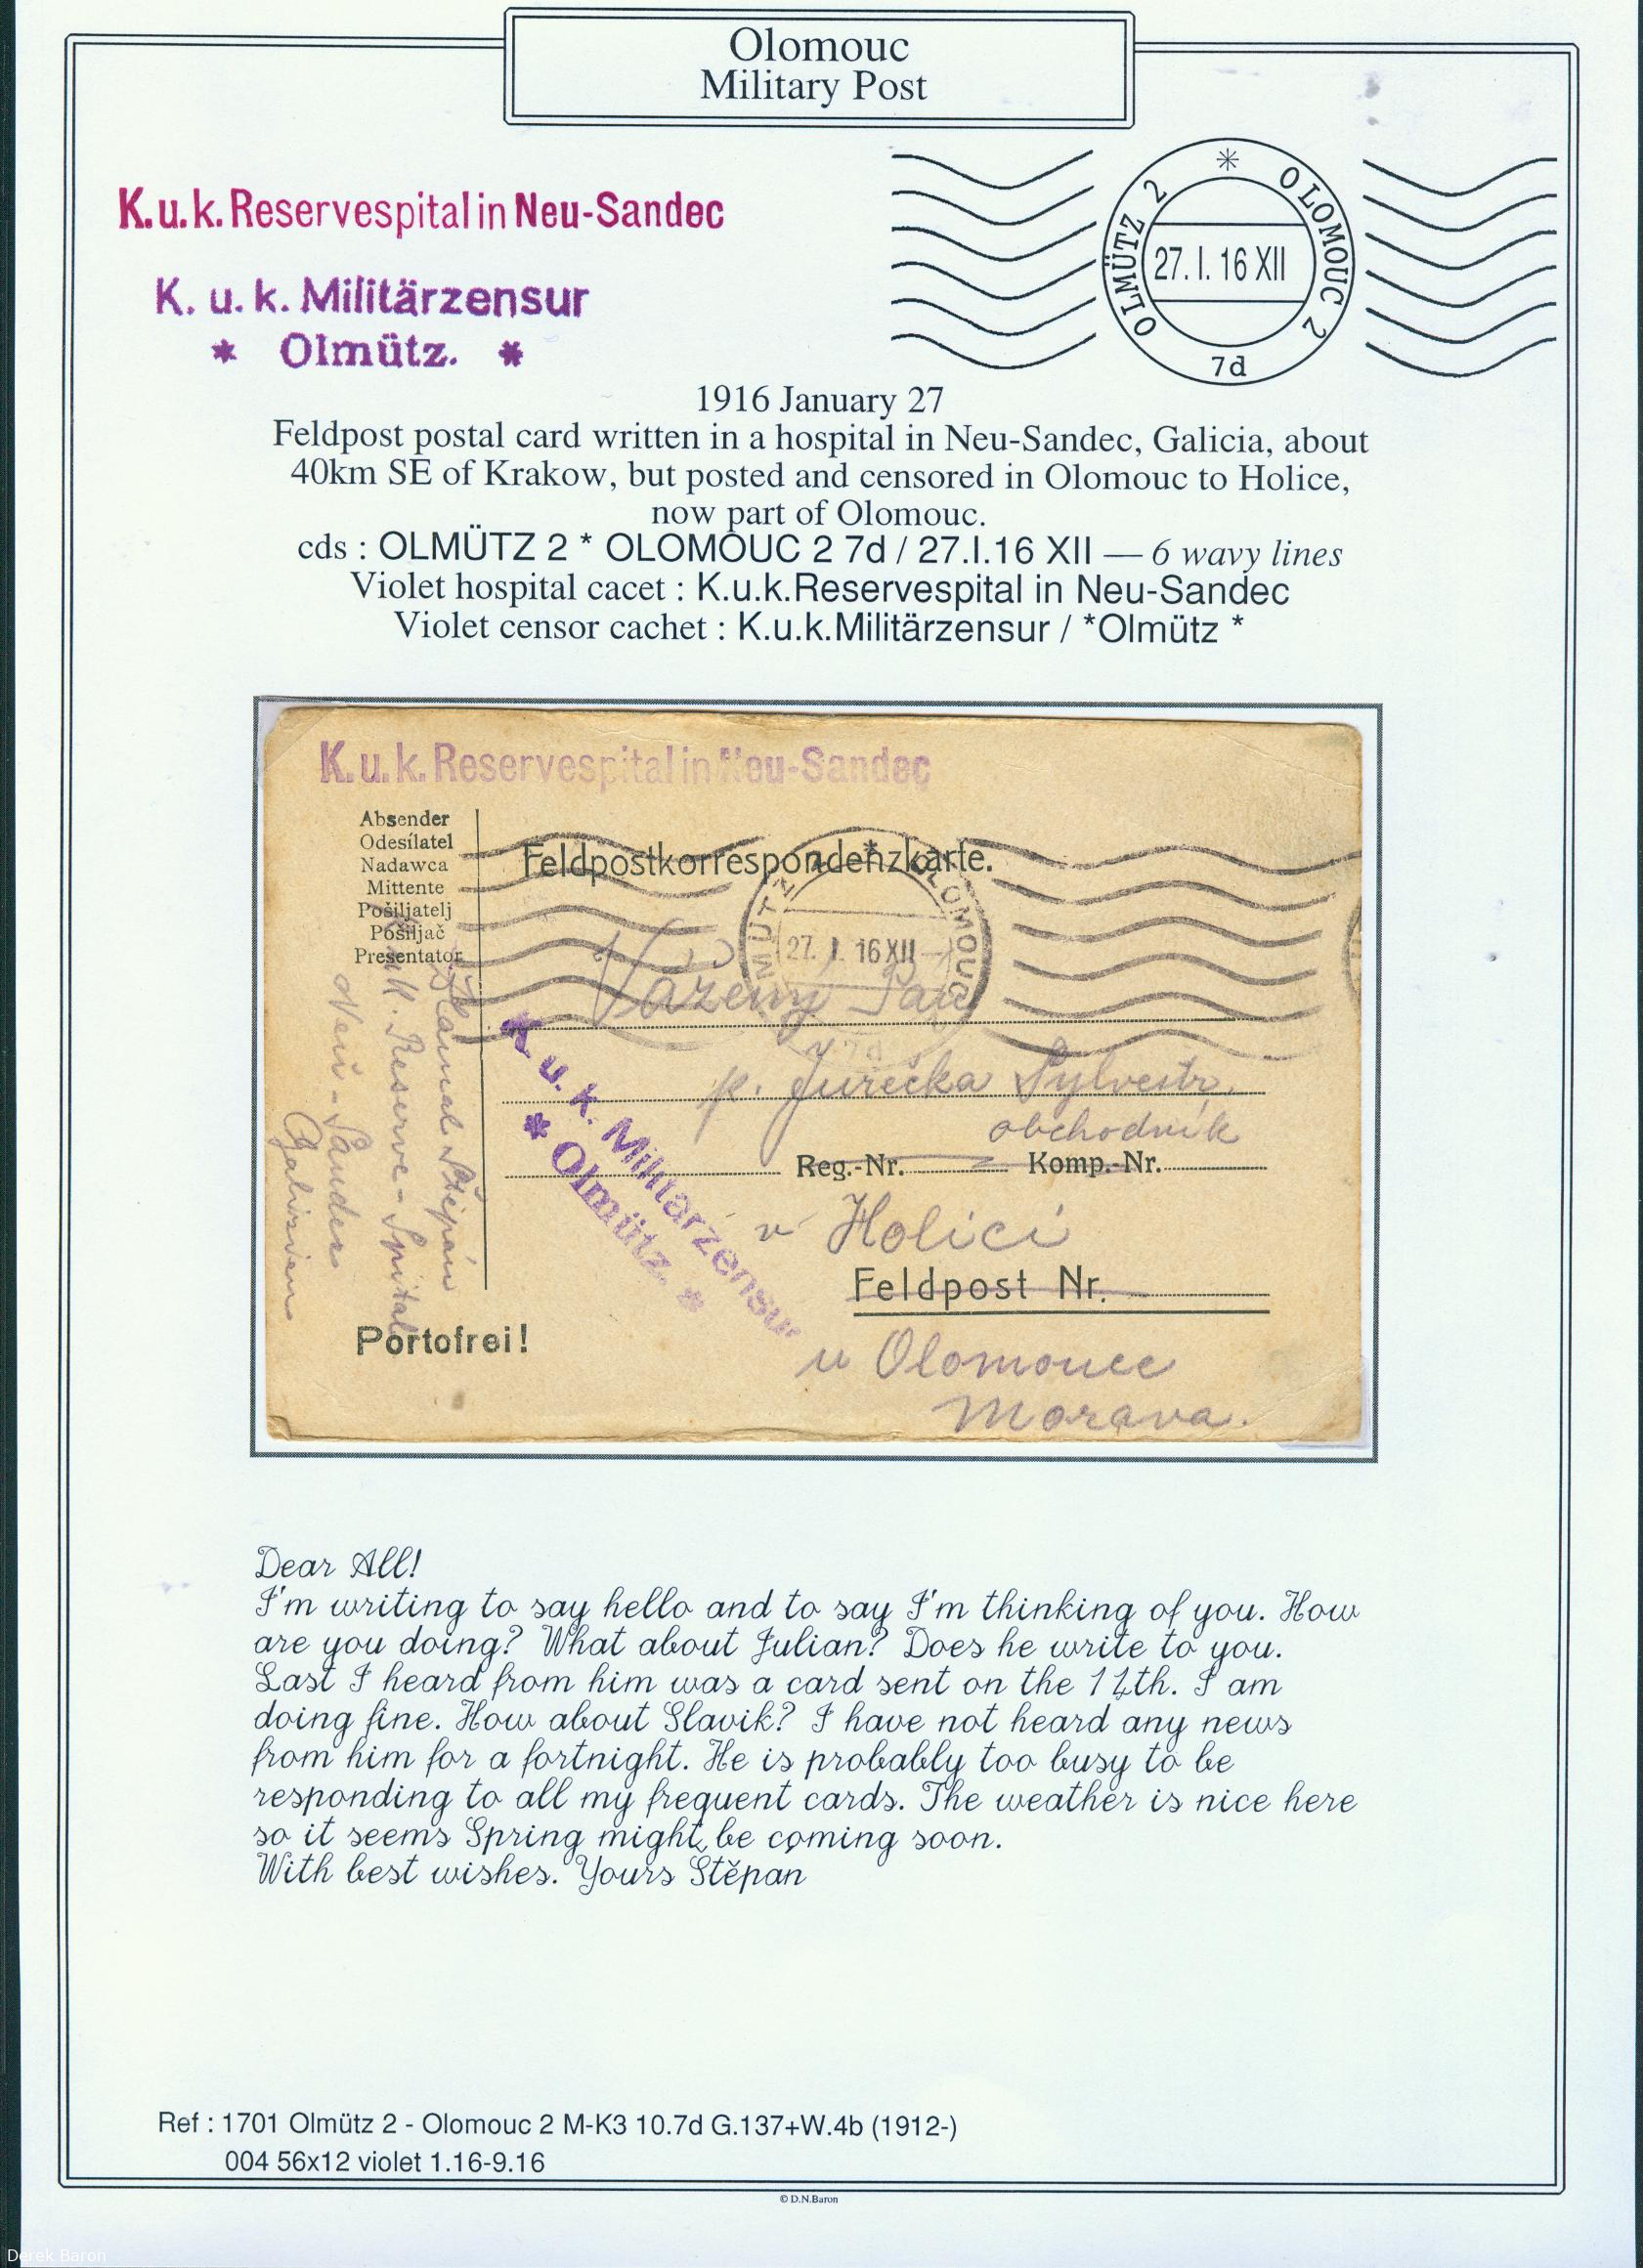 Olomouc
Military Post
K.u.k. Reservespital in Neu-Sandec
K. u. k. Militärzensur
* Olmütz. *
OLMÜTZ 2 * OLOMOUC 2
27. I. 16 XII
7d
1916 January 27
Feldpost postal card written in a hospital in Neu-Sandec, Galicia, about
40km SE of Krakow, but posted and censored in Olomouc to Holice,
now part of Olomouc.
cds : OLMÜTZ 2 * OLOMOUC 2 7d / 27.I.16 XII — 6 wavy lines
Violet hospital cacet : K.u.k.Reservespital in Neu-Sandec
Violet censor cachet : K.u.k.Militärzensur / *Olmütz *
K.u.k. Reservespital in Neu-Sandec
Absender
Odesílatel
Nadawca
Mittente
Pošiljatelj
Pošiljač
Presentator
Feldpostkorrespondenzkarte.
MÜTZ * OLOMOUC
27. I. 16 XII
7d
Vážený Pan
p. Jurečka Sylvestr,
obchodník
Reg.-Nr. Komp.-Nr.
v Holici
Feldpost Nr.
u Olomouce
Morava.
K. u. k. Militärzensur
* Olmütz. *
Štěpán
k. Reserve-Spital
Neu-Sandec
Galizien
Portofrei!
Dear All!
I'm writing to say hello and to say I'm thinking of you. How
are you doing? What about Julian? Does he write to you.
Last I heard from him was a card sent on the 14th. I am
doing fine. How about Slavik? I have not heard any news
from him for a fortnight. He is probably too busy to be
responding to all my frequent cards. The weather is nice here
so it seems Spring might be coming soon.
With best wishes. Yours Štěpan
Ref : 1701 Olmütz 2 - Olomouc 2 M-K3 10.7d G.137+W.4b (1912-)
004 56x12 violet 1.16-9.16
© D.N.Baron
Derek Baron